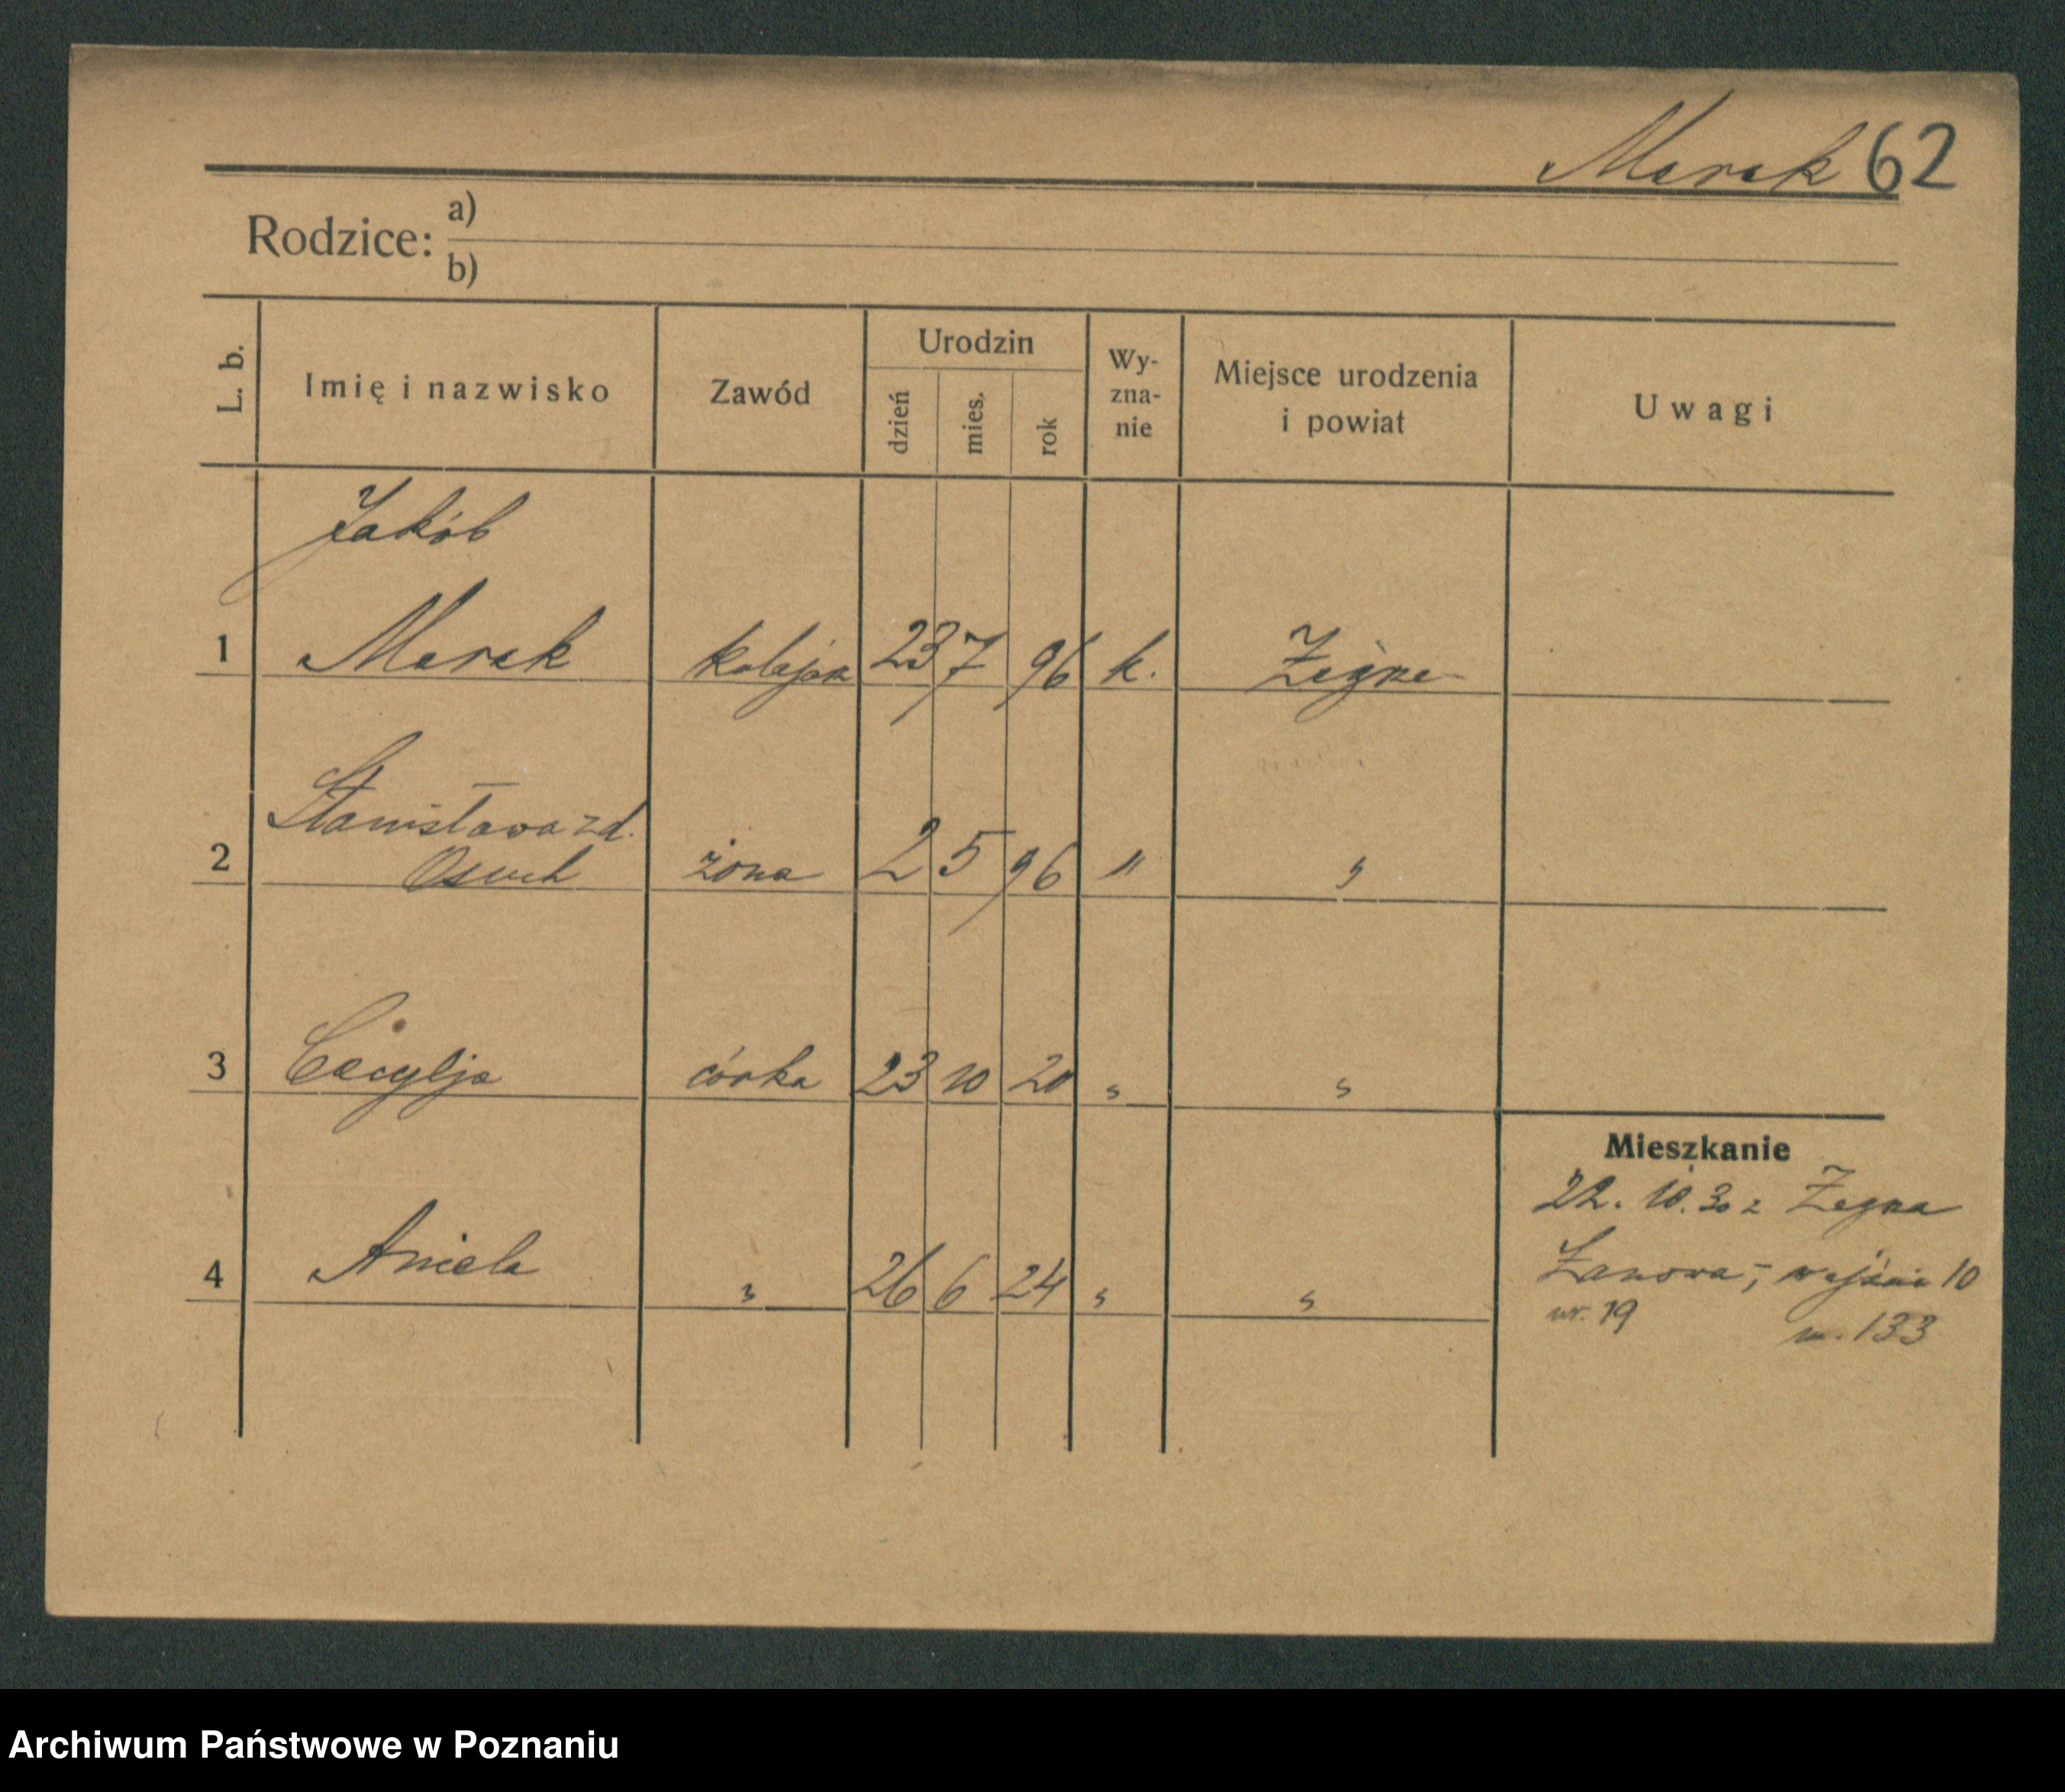 Marek 62
Rodzice: a)
b)
L. b. Imię i nazwisko Zawód Urodzin dzień mies. rok Wy-zna-nie Miejsce urodzenia i powiat Uwagi
Jakób
1 Marek kolejarz 23 7 96 k.
Stanisława z d.
2 Osuch żona 2 5 96 " "
3 Cecylja córka 23 10 20 " "
4 Aniela " 26 6 24 " "
Mieszkanie
22. 10. 30 z
wejście 10
nr. 19 m. 133
Archiwum Państwowe w Poznaniu